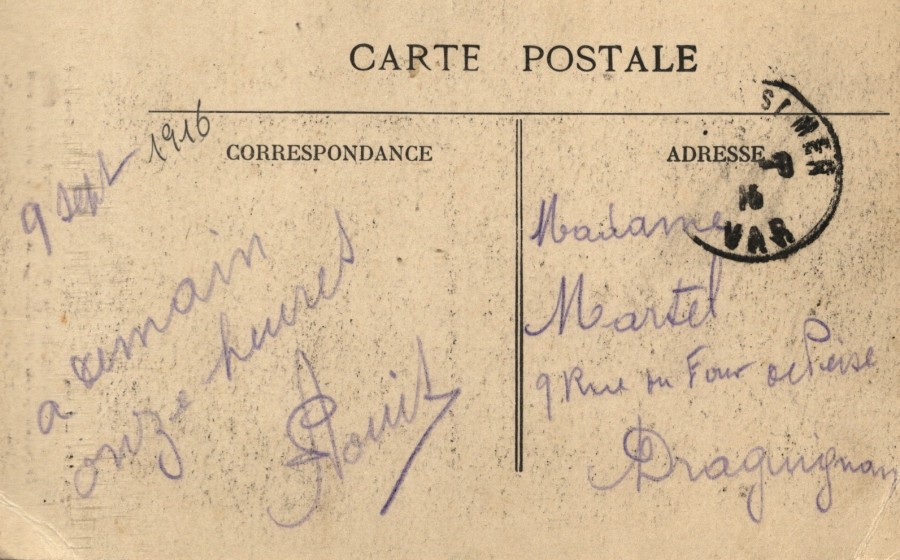 CARTE POSTALE
CORRESPONDANCE
9 Sept
1916
a demain
onze heures
ADRESSE
Madame
Martel
9 Rue du Four
Draguignan
ST MER
9
16
VAR